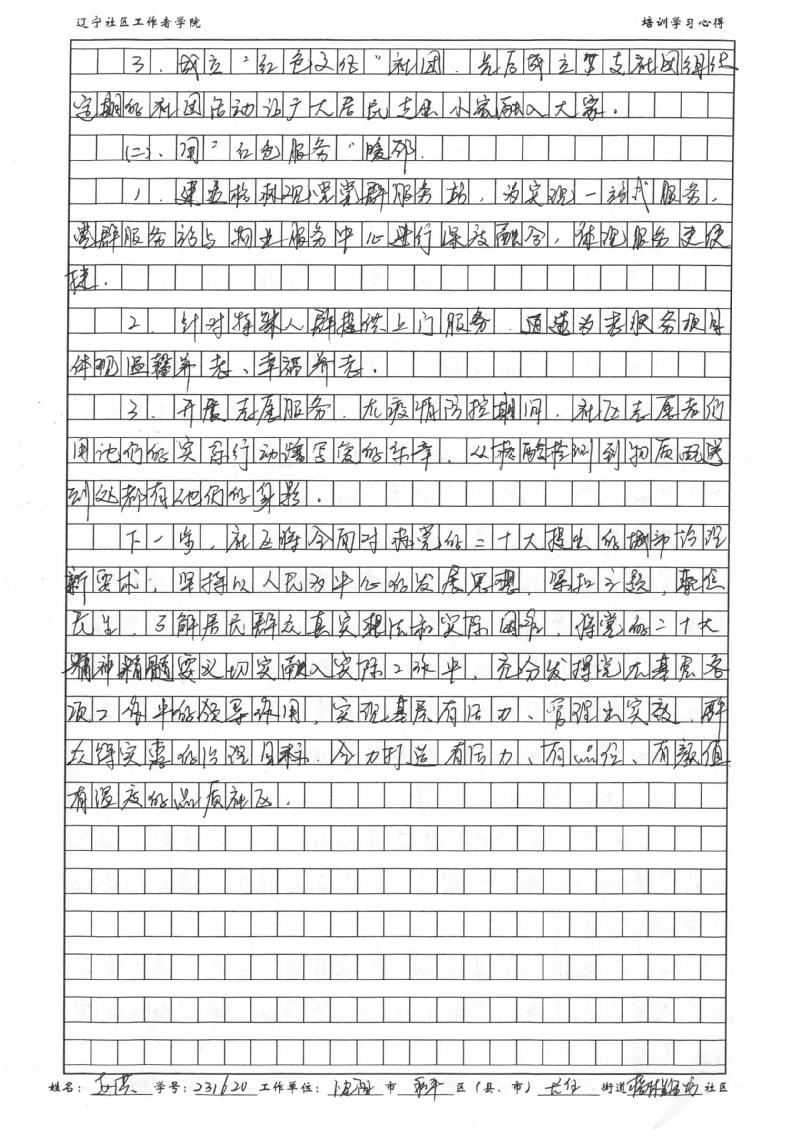 辽宁社区工作者学院 培训学习心得
3.成立“红色文化”社团.先后成立了支社团组织
定期的社团活动让广大居民走出小家融入大家。
(二)、用“红色服务”暖邻.
1.建造格林观堂党群服务站,为实现一站式服务,
党群服务站与物业服务中心进行深度融合,体现服务更便
捷.
2.针对特殊人群提供上门服务.通过为老服务项目
体现温馨养老、幸福养老.
3.开展志愿服务.在疫情防控期间,社区志愿者们
用他们的实际行动谱写爱的乐章,从核酸检测到物质配送
到处都有他们的身影.
下一步,社区将全面对标党的二十大提出的城市治理
新要求,坚持以人民为中心的发展思想,紧扣主题,聚焦
民生,了解居民群众真实想法和实际困难,将党的二十大
精神精髓要义切实融入实际工作中,充分发挥党在基层各
项工作中的领导作用,实现基层有活力、管理出实效、群
众得实惠的治理目标.全力打造有活力、有品位、有颜值
有温度的品质社区.
姓名: 学号:231620 工作单位:沈阳市 和平 区(县、市) 长白 街道 社区